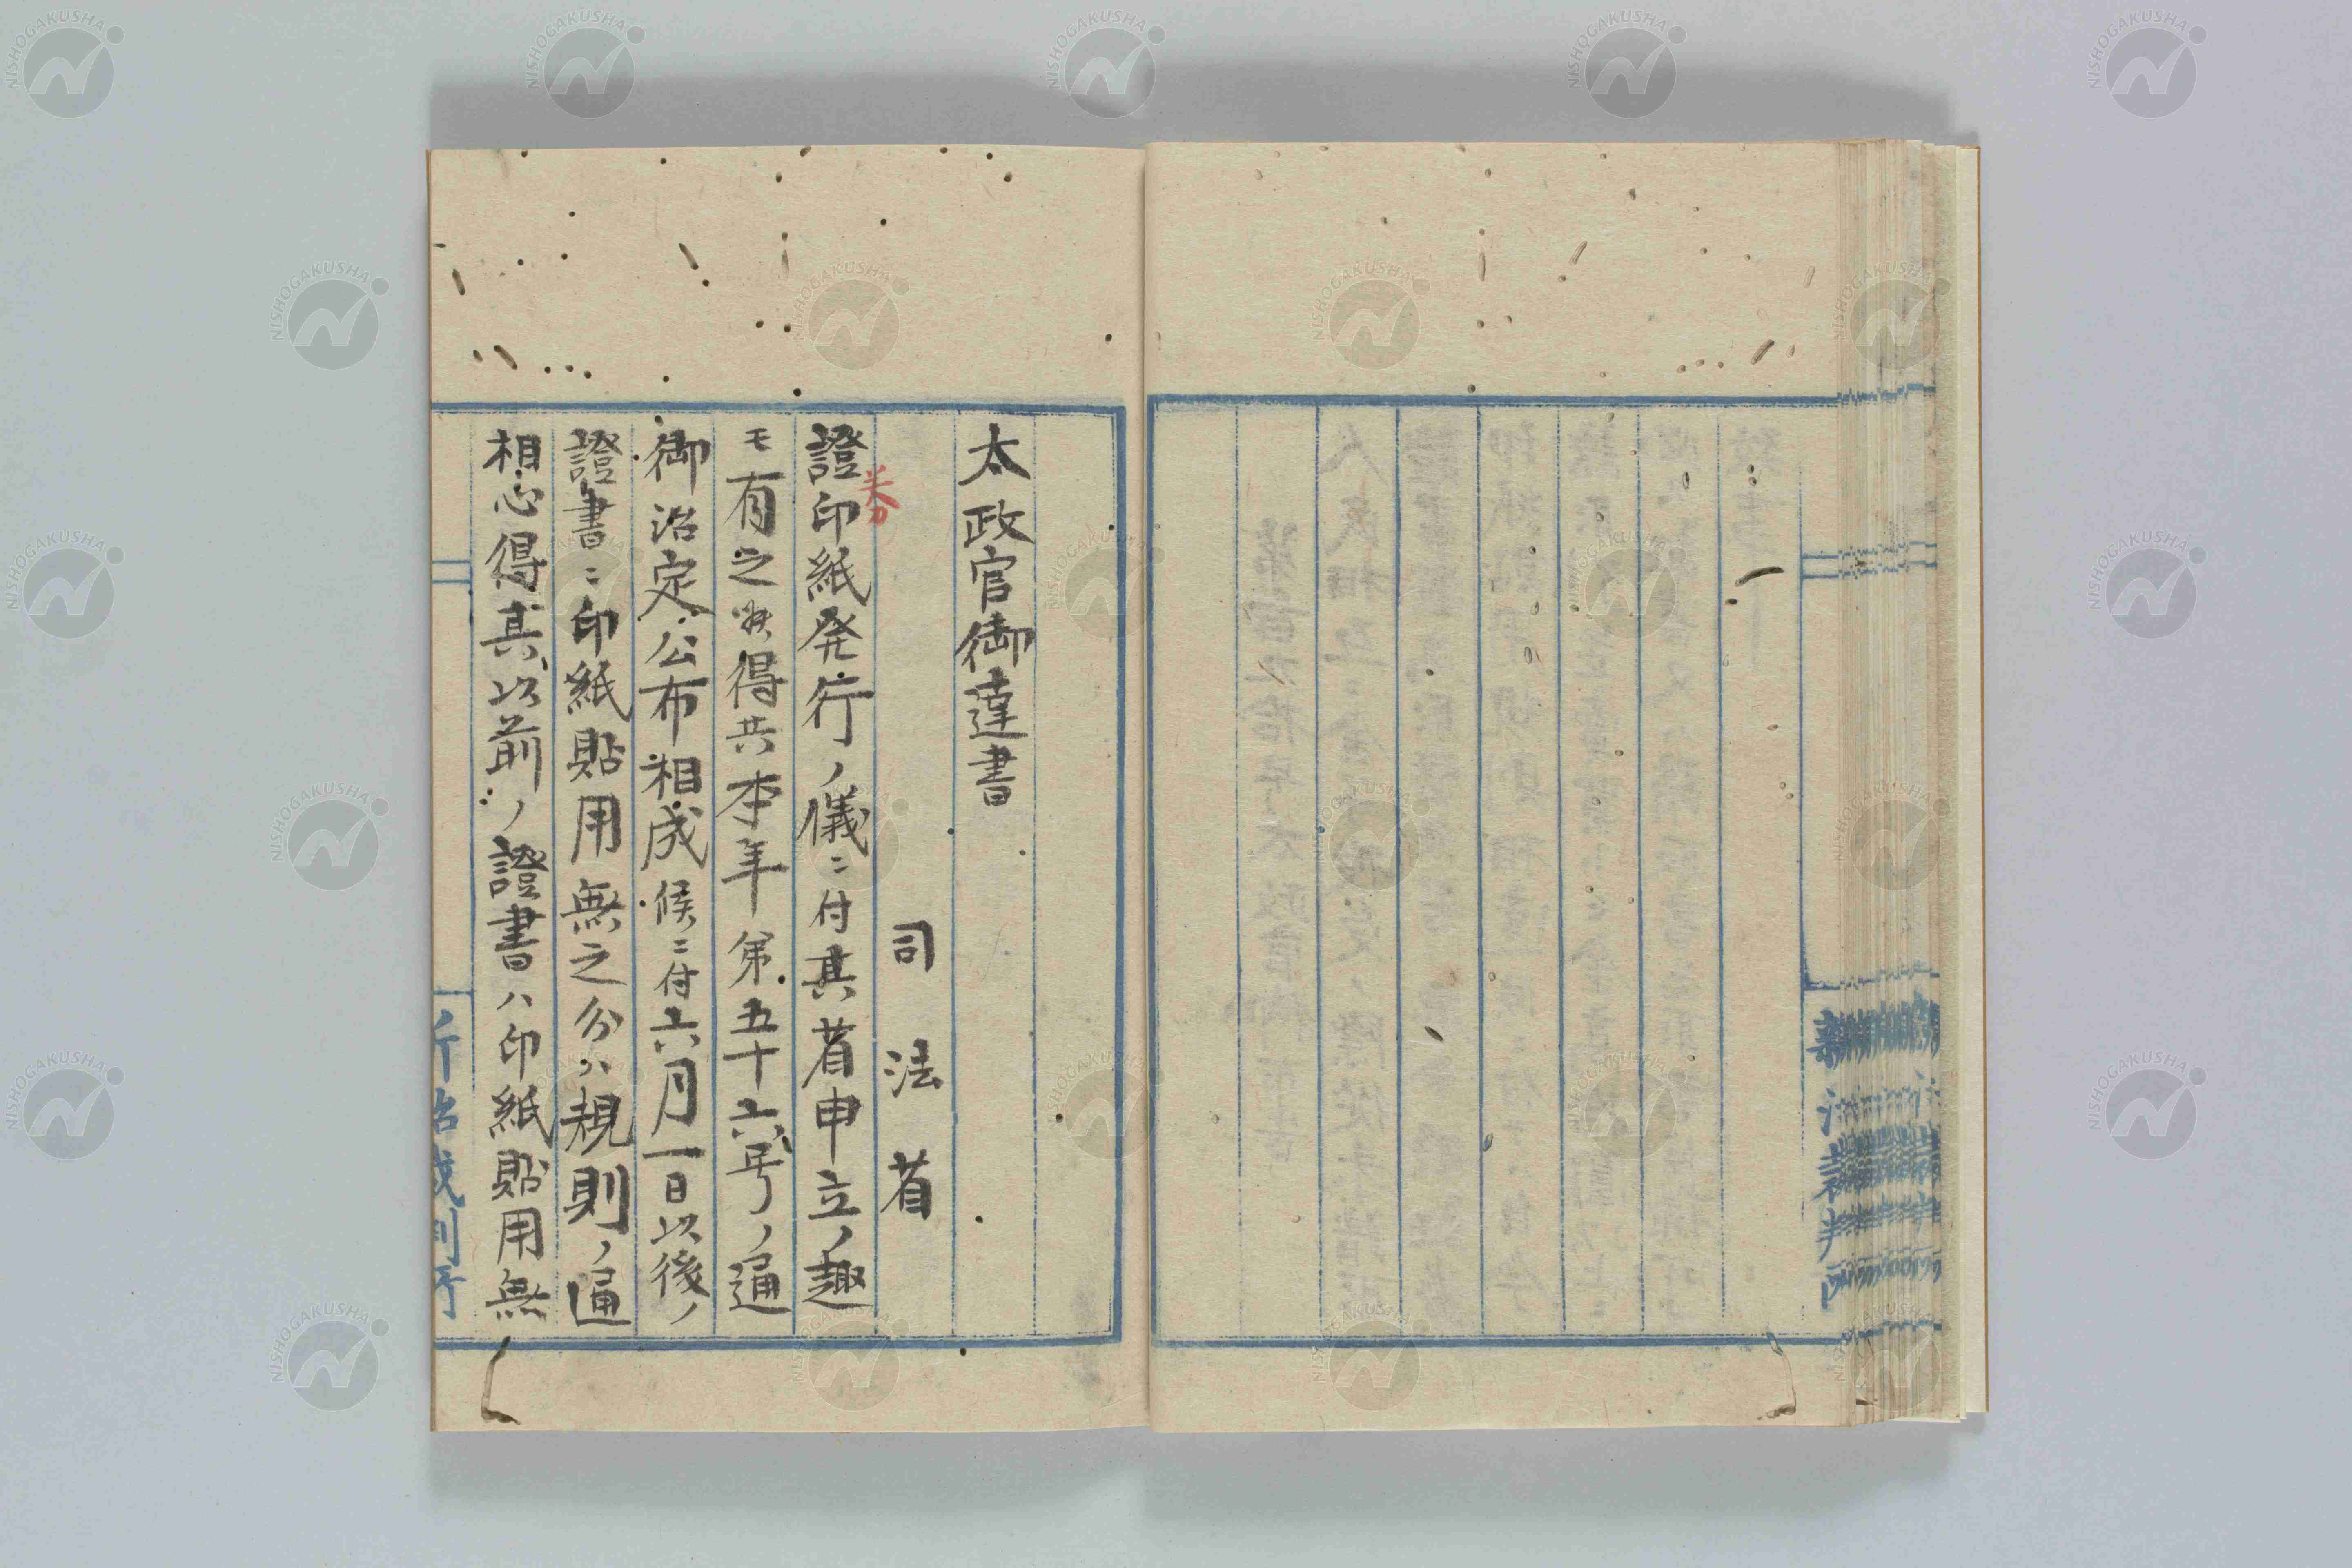 太政官御達書
司法省
券
證印紙発行ノ儀ニ付其省申立ノ趣
モ有之候得共本年第五十六号ノ通
御治定公布相成候ニ付六月一日以後ノ
證書ニ印紙貼用無之分ハ規則ノ通
相心得其以前ノ證書ハ印紙貼用無
新治裁判所
NISHOGAKUSHA